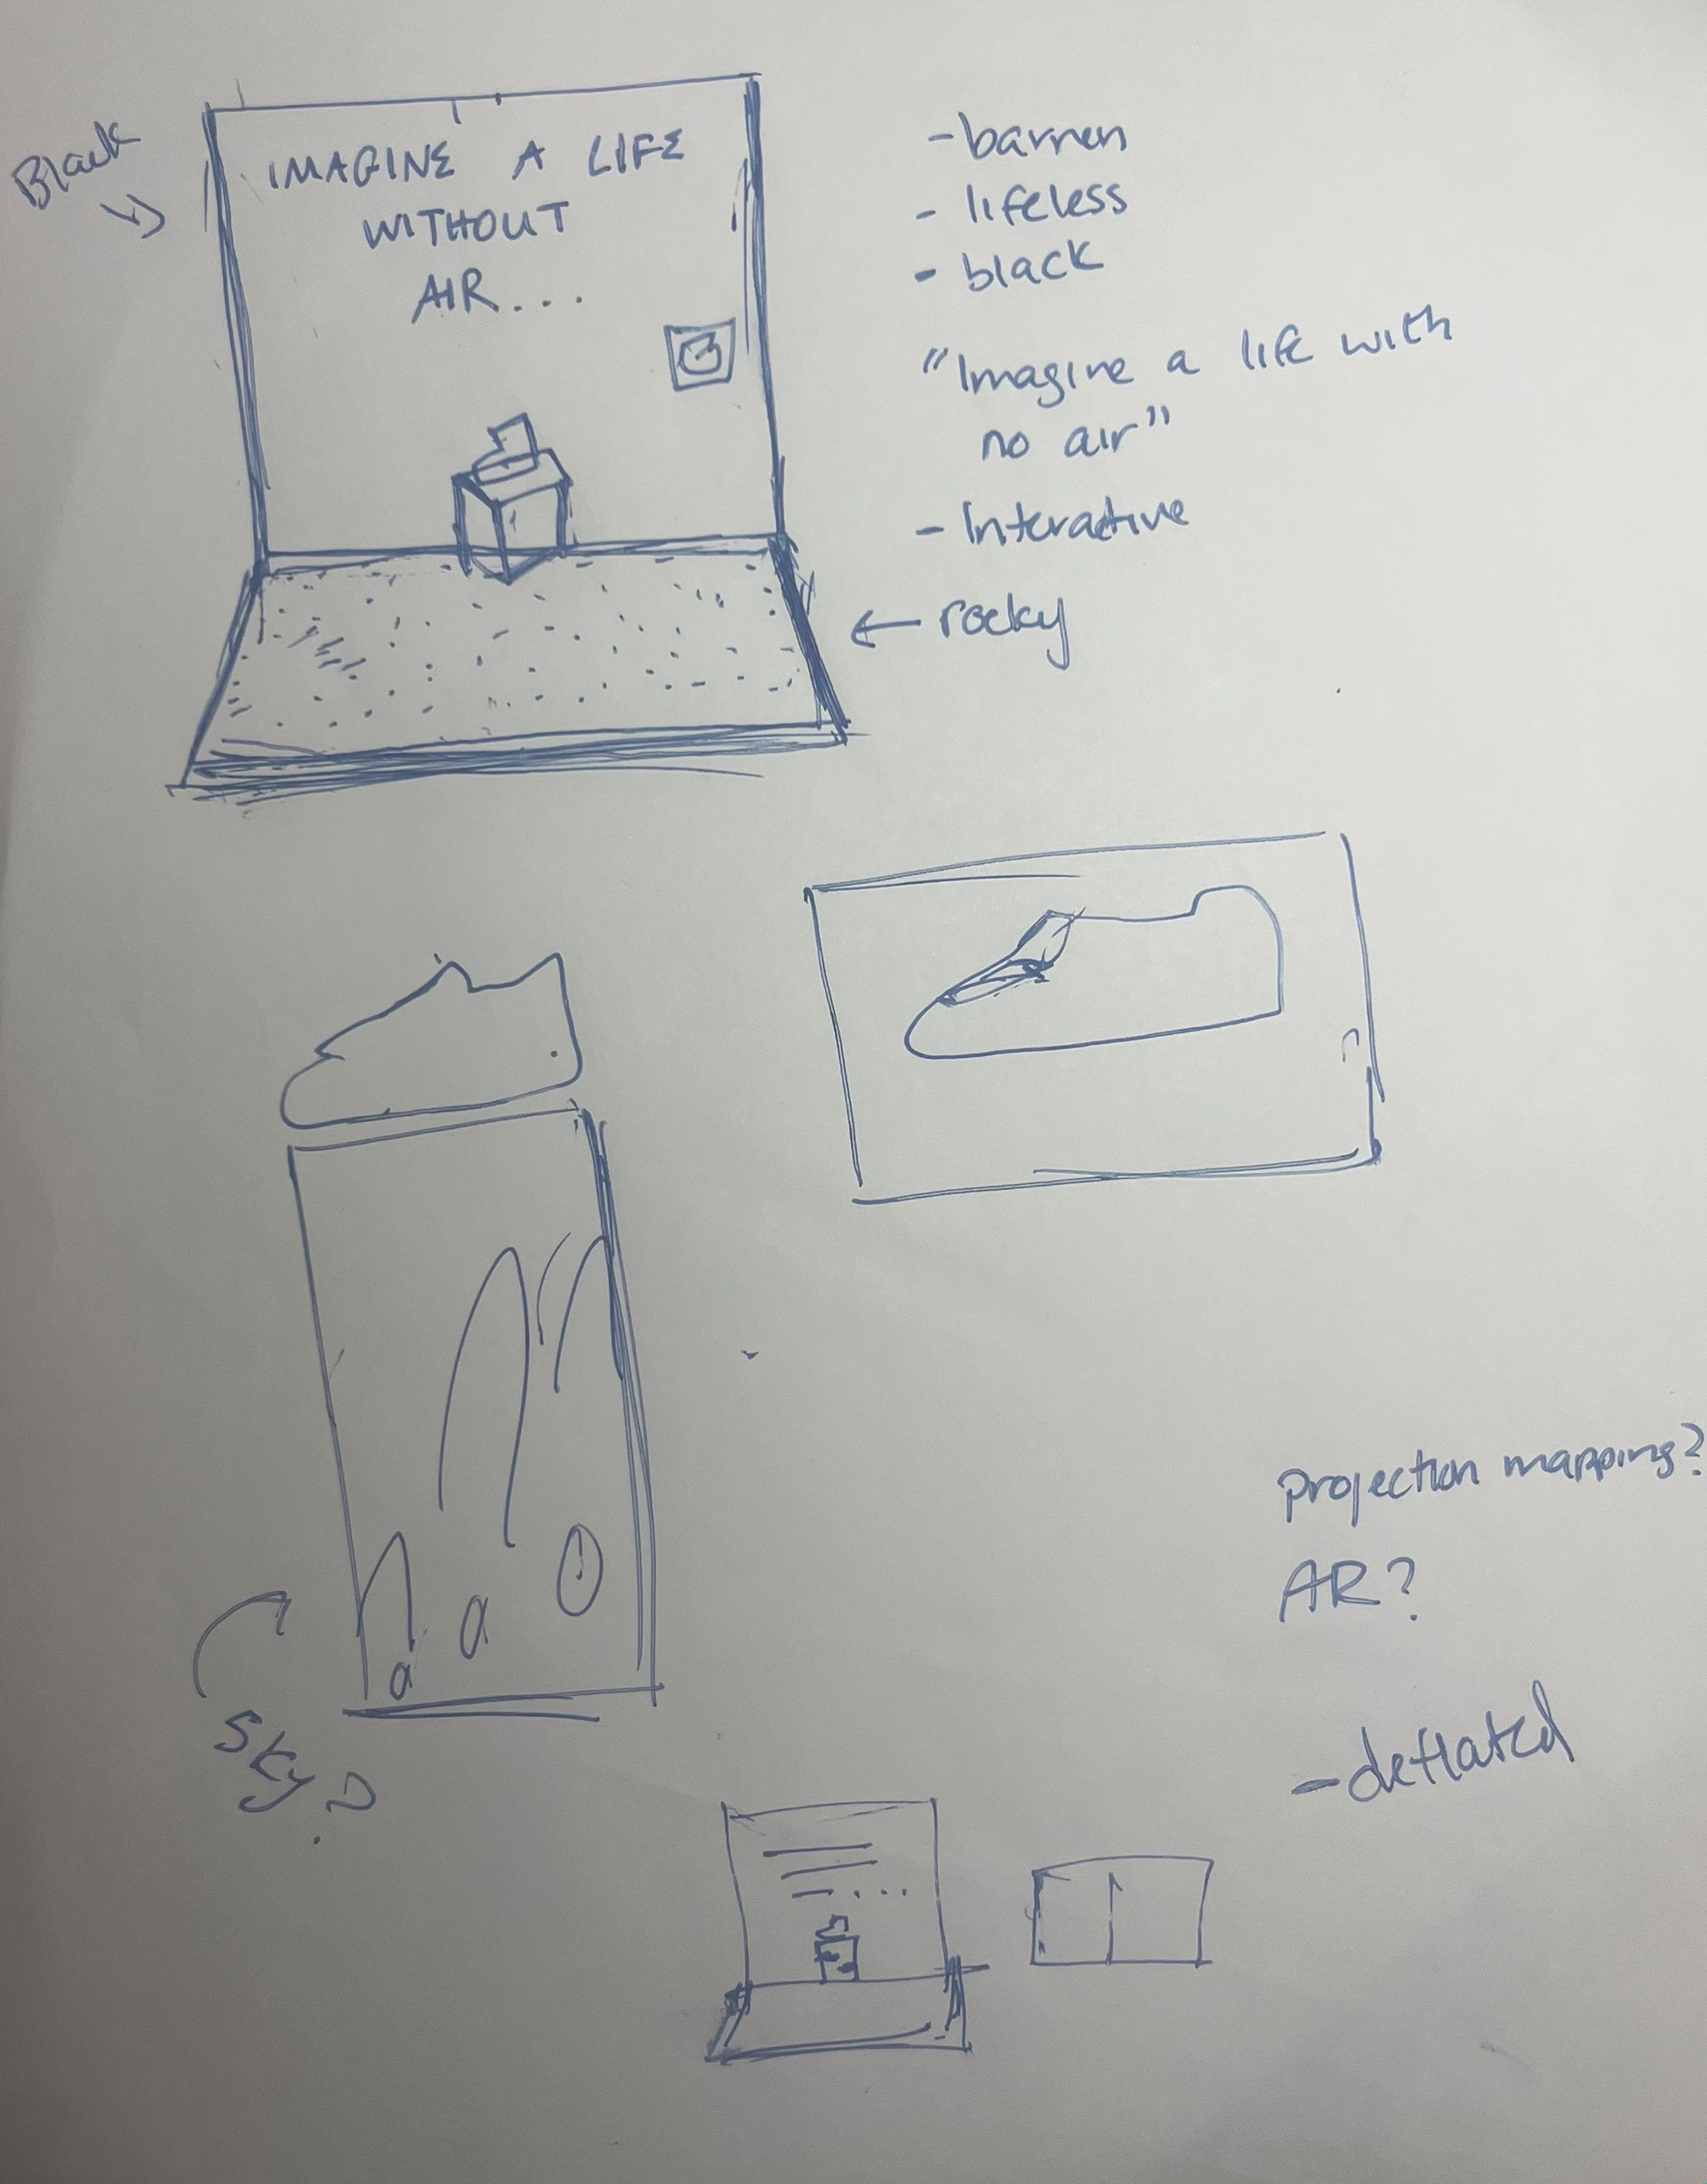 Black
IMAGINE A LIFE
WITHOUT
AIR...
- barren
- lifeless
- black
"Imagine a life with
no air"
- Interactive
rocky
Sky?
projection mapping?
AR?
- deflated